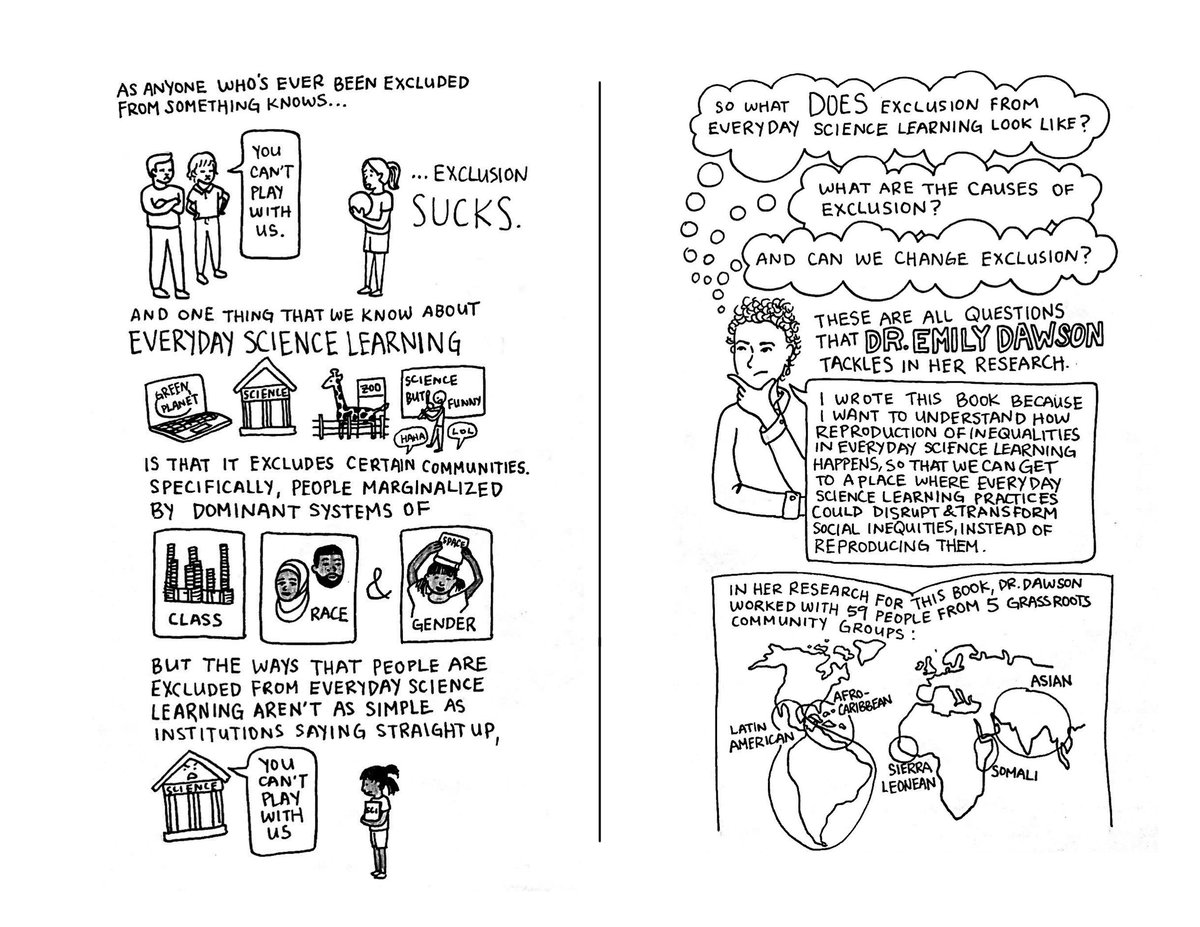 AS ANYONE WHO'S EVER BEEN EXCLUDED
FROM SOMETHING KNOWS...
YOU
CAN'T
PLAY
WITH
US.
...EXCLUSION
SUCKS.
AND ONE THING THAT WE KNOW ABOUT
EVERYDAY SCIENCE LEARNING
GREEN
PLANET
SCIENCE
ZOO
SCIENCE
BUT FUNNY
HAHA
LOL
IS THAT IT EXCLUDES CERTAIN COMMUNITIES.
SPECIFICALLY, PEOPLE MARGINALIZED
BY DOMINANT SYSTEMS OF
CLASS
RACE
&
SPACE
GENDER
BUT THE WAYS THAT PEOPLE ARE
EXCLUDED FROM EVERYDAY SCIENCE
LEARNING AREN'T AS SIMPLE AS
INSTITUTIONS SAYING STRAIGHT UP,
SCIENCE
YOU
CAN'T
PLAY
WITH
US
SCI
SO WHAT DOES EXCLUSION FROM
EVERYDAY SCIENCE LEARNING LOOK LIKE?
WHAT ARE THE CAUSES OF
EXCLUSION?
AND CAN WE CHANGE EXCLUSION?
THESE ARE ALL QUESTIONS
THAT DR. EMILY DAWSON
TACKLES IN HER RESEARCH.
I WROTE THIS BOOK BECAUSE
I WANT TO UNDERSTAND HOW
REPRODUCTION OF INEQUALITIES
IN EVERYDAY SCIENCE LEARNING
HAPPENS, SO THAT WE CAN GET
TO A PLACE WHERE EVERYDAY
SCIENCE LEARNING PRACTICES
COULD DISRUPT & TRANSFORM
SOCIAL INEQUITIES, INSTEAD OF
REPRODUCING THEM.
IN HER RESEARCH FOR THIS BOOK, DR. DAWSON
WORKED WITH 59 PEOPLE FROM 5 GRASSROOTS
COMMUNITY GROUPS:
LATIN
AMERICAN
AFRO-
CARIBBEAN
SIERRA
LEONEAN
SOMALI
ASIAN